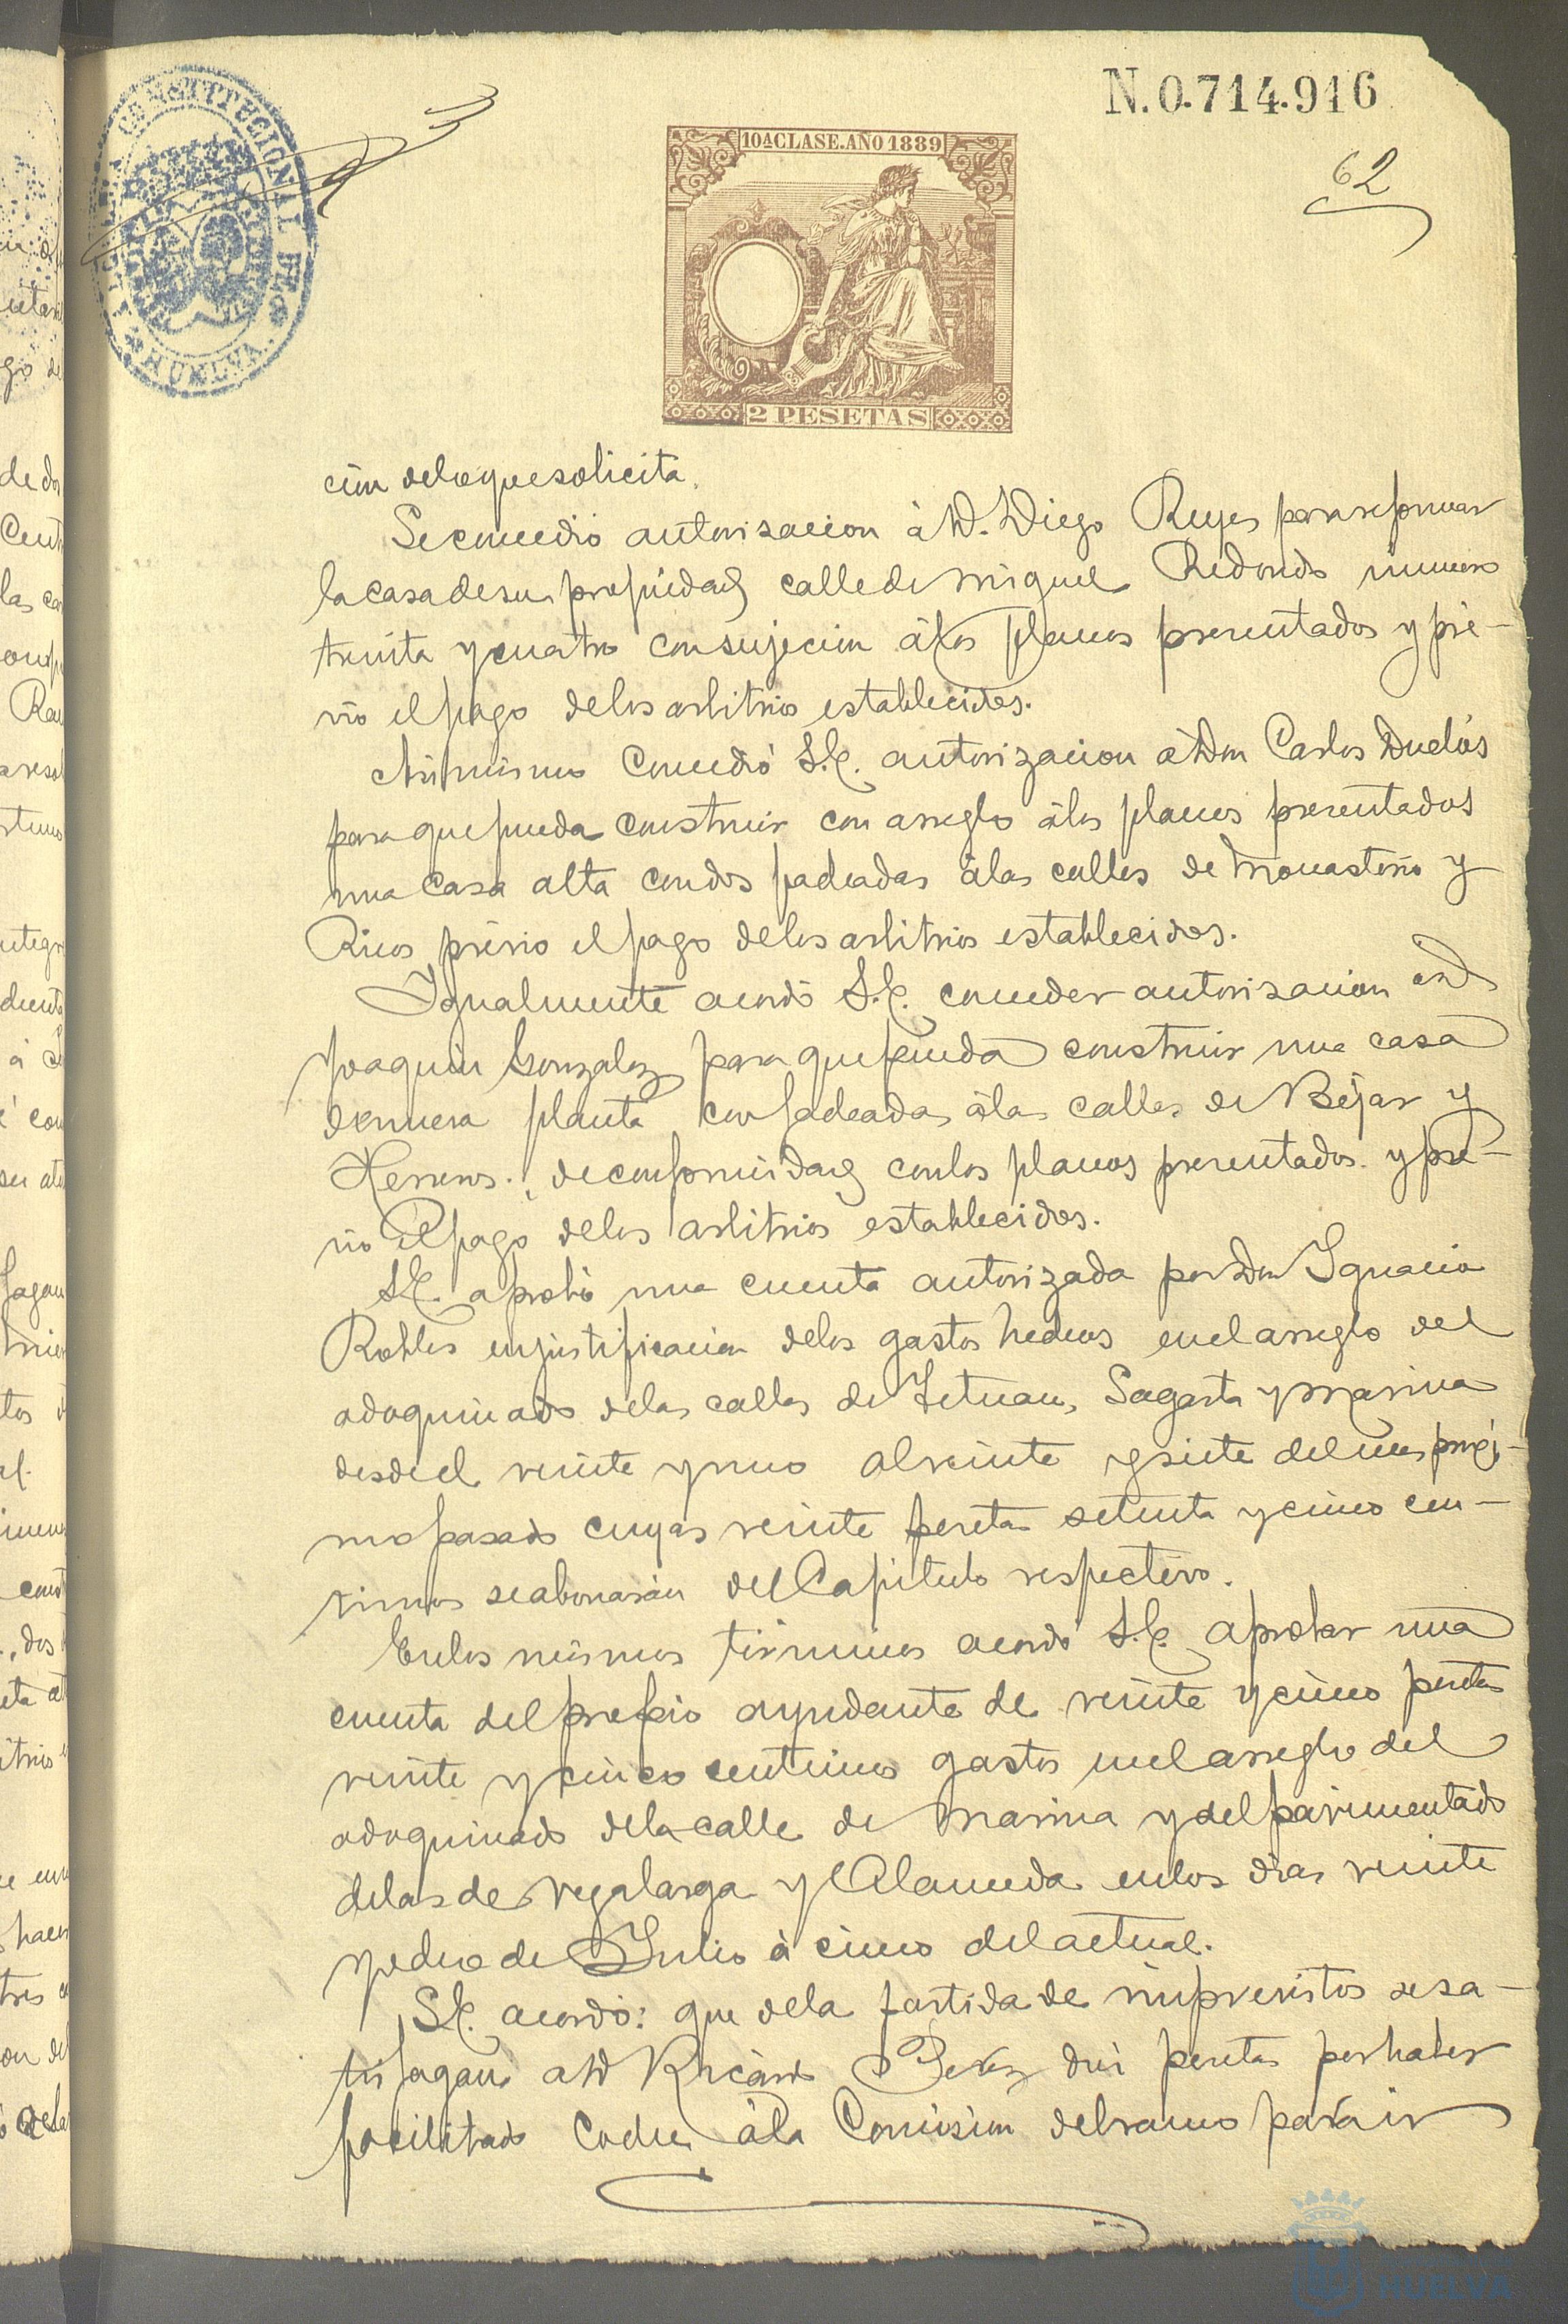 N.0.714.916
62
ALCALDIA CONSTITUCIONAL DE HUELVA
10ª CLASE. AÑO 1889
2 PESETAS
cion de lo que solicita.
Se concedió autorisacion á D. Diego Reyes para reformar
la casa de su propiedad calle de Miguel Redondo número
treinta y cuatro con sujecion á los planos presentados y pré-
vio el pago de los arbitrios establecidos.
Asimismo concedió S.E. autorizacion á Don Carlos Duclós
para que pueda construir con arreglo á los planos presentados
una casa alta con dos fachadas á las calles de Monasterio y
Ricos prévio el pago de los arbitrios establecidos.
Igualmente acordó S.E. conceder autorisacion á D.
Joaquin Gonzalez para que pueda construir una casa
de nueva planta con fachadas á las calles de Béjar y
Herreros, de conformidad con los planos presentados y pré-
vio el pago de los arbitrios establecidos.
S.E. aprobó una cuenta autorizada por Don Ignacio
Robles en justificacion de los gastos hechos en el arreglo del
adoquinado de las calles de Tetuan, Sagasta y Marina
desde el veinte y uno al veinte y siete del mes próxi-
mo pasado cuyas veinte pesetas setenta y cinco cen-
timos se abonarán del Capitulo respectivo.
En los mismos términos acordó S.E. aprobar una
cuenta del propio ayudante de veinte y cinco pesetas
veinte y cinco centimos gastos en el arreglo del
adoquinado de la calle de Marina y del pavimentado
de las de Vegalarga y Alameda en los dias veinte
y ocho de Julio á cinco del actual.
S.E. acordó: que de la partida de imprevistos se sa-
tisfagan á D. Ricardo Perez diez pesetas por haber
facilitado coche á la Comision del ramo para ir
HUELVA